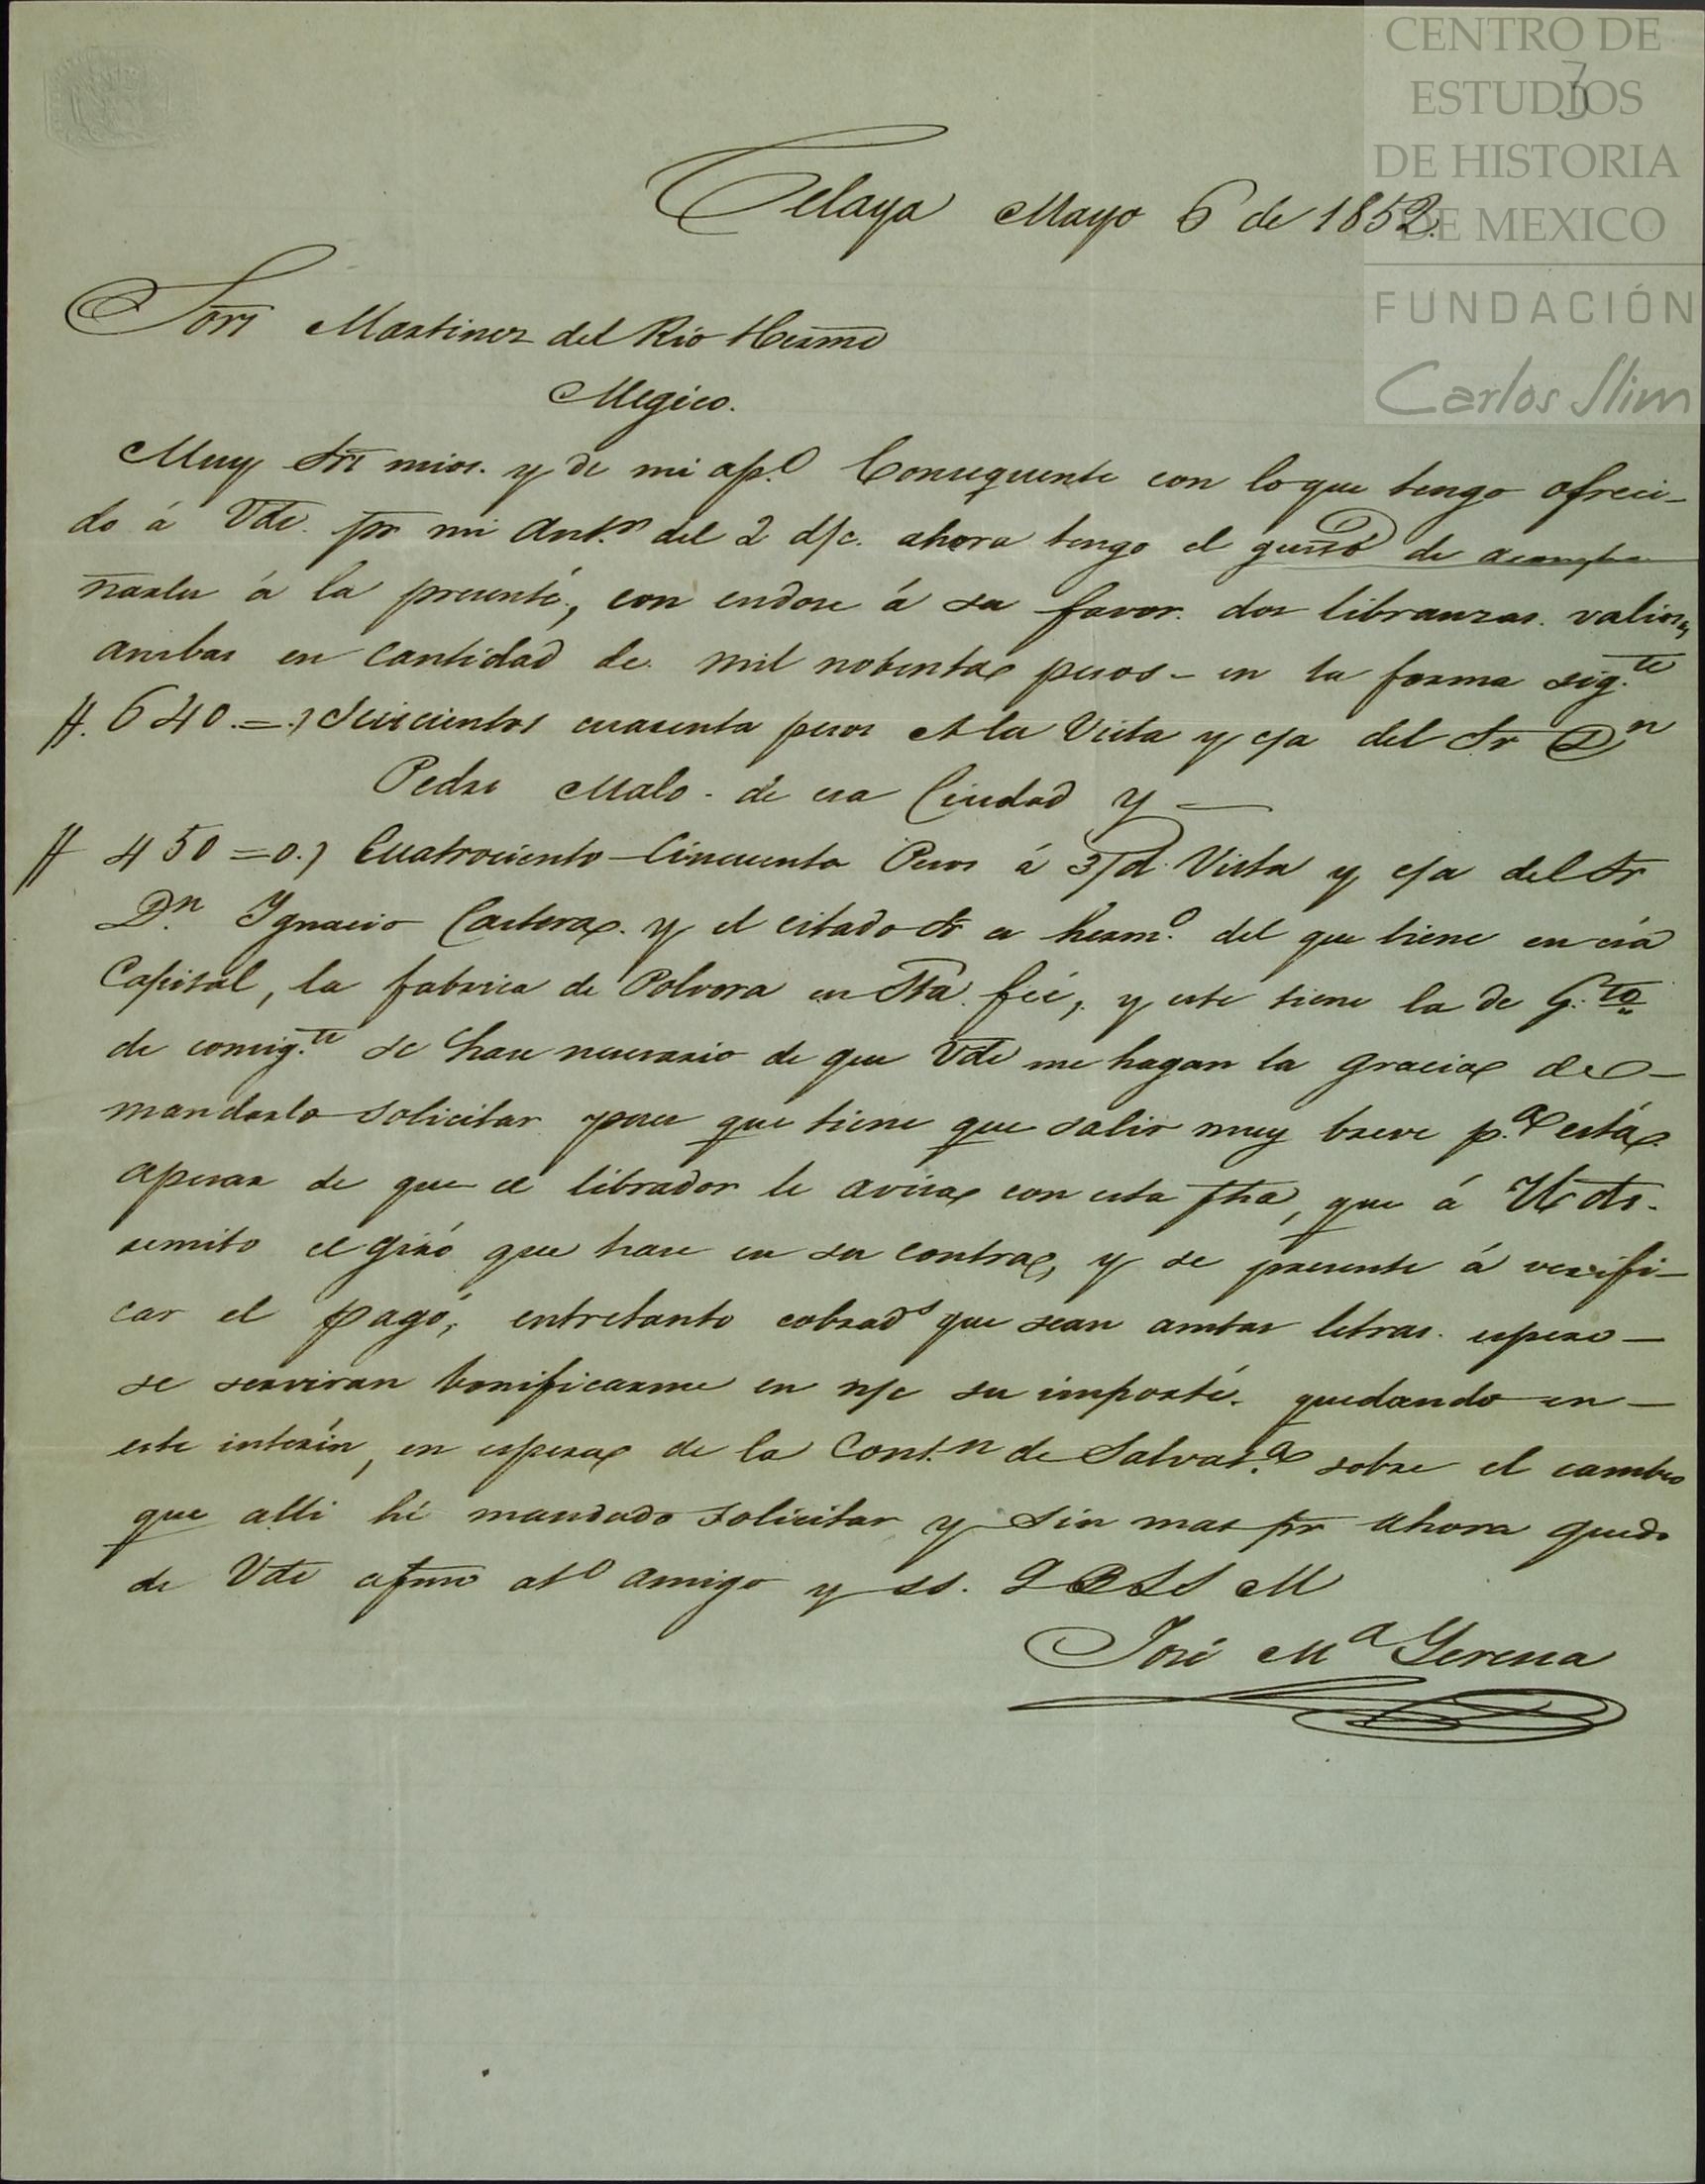 CENTRO DE
ESTUDIOS
DE HISTORIA
DE MEXICO
FUNDACIÓN
Carlos Slim
3
Celaya Mayo 6 de 1852.
Sors Martinez del Rio Hermo
Megico.
Muy Srs mios. y de mi ap.o Consequente con lo que tengo ofreci-
do á Vds. pr mi Ant.n del 2 d/c. ahora tengo el gusto de acompa
ñarles á la presenté, con endose á su favor. dos libranzas. valiosas
ambas en cantidad de. mil nobenta pesos - en la forma sig.te
$. 640.=.) Seiscientos cuarenta pesos A la Vista y c/a del Sr Dn
Pedro Malo - de esa Ciudad y —
$ 450=0.) Cuatrociento Cincuenta Pesos á 3/d. Vista y c/a del Sr
D.n Ygnacio Castera. y el citado Sr es herm.o del que tiene en esá
Capital, la fabrica de Polvora en Sta. feé, y este tiene la de G.to
de consig.te se hase nesesario de que Vds me hagan la gracia de-
mandarlo solicitar pues que tiene que salir muy breve p.a está.
apesar de que el librador le avisa con esta fha, que á Uds.
remito el giró que hase en su contra, y se presente á verifi-
car el pagó, entretanto cobrads que sean ambas letras. espero-
se serviran bonificarme en n/c su importé. quedando en-
este interin, en espera de la Cont.n de Salvat.a sobre el cambio
que alli hé mandado solicitar y sin mas pr ahora quedo
de Vds afmo at.o amigo y SS. Q B SS M
José M.a Gerena